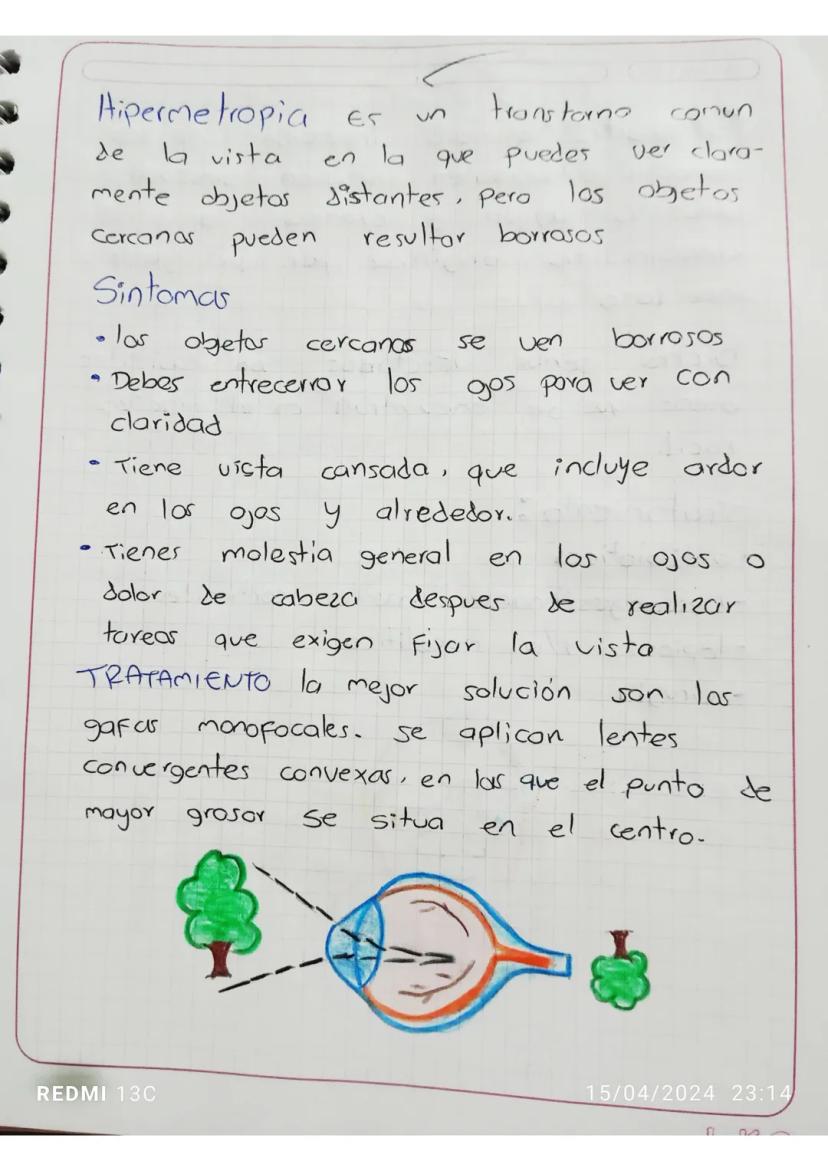 Hipermetropia Es un transtorno comun
de la vista en la que puedes ver clara-
mente objetos distantes, pero los objetos
cercanos pueden resultar borrosos
Sintomas
• los objetos cercanos se ven borrosos
• Debes entrecerrar los ojos para ver con
claridad
• Tiene vista cansada, que incluye ardor
en los ojos y alrededor.
• Tienes molestia general en los ojos o
dolor de cabeza despues de realizar
tareas que exigen fijar la vista
TRATAMIENTO la mejor solución son las
gafas monofocales. se aplican lentes
convergentes convexas, en las que el punto de
mayor grosor se situa en el centro.
REDMI 13C
15/04/2024 23:14